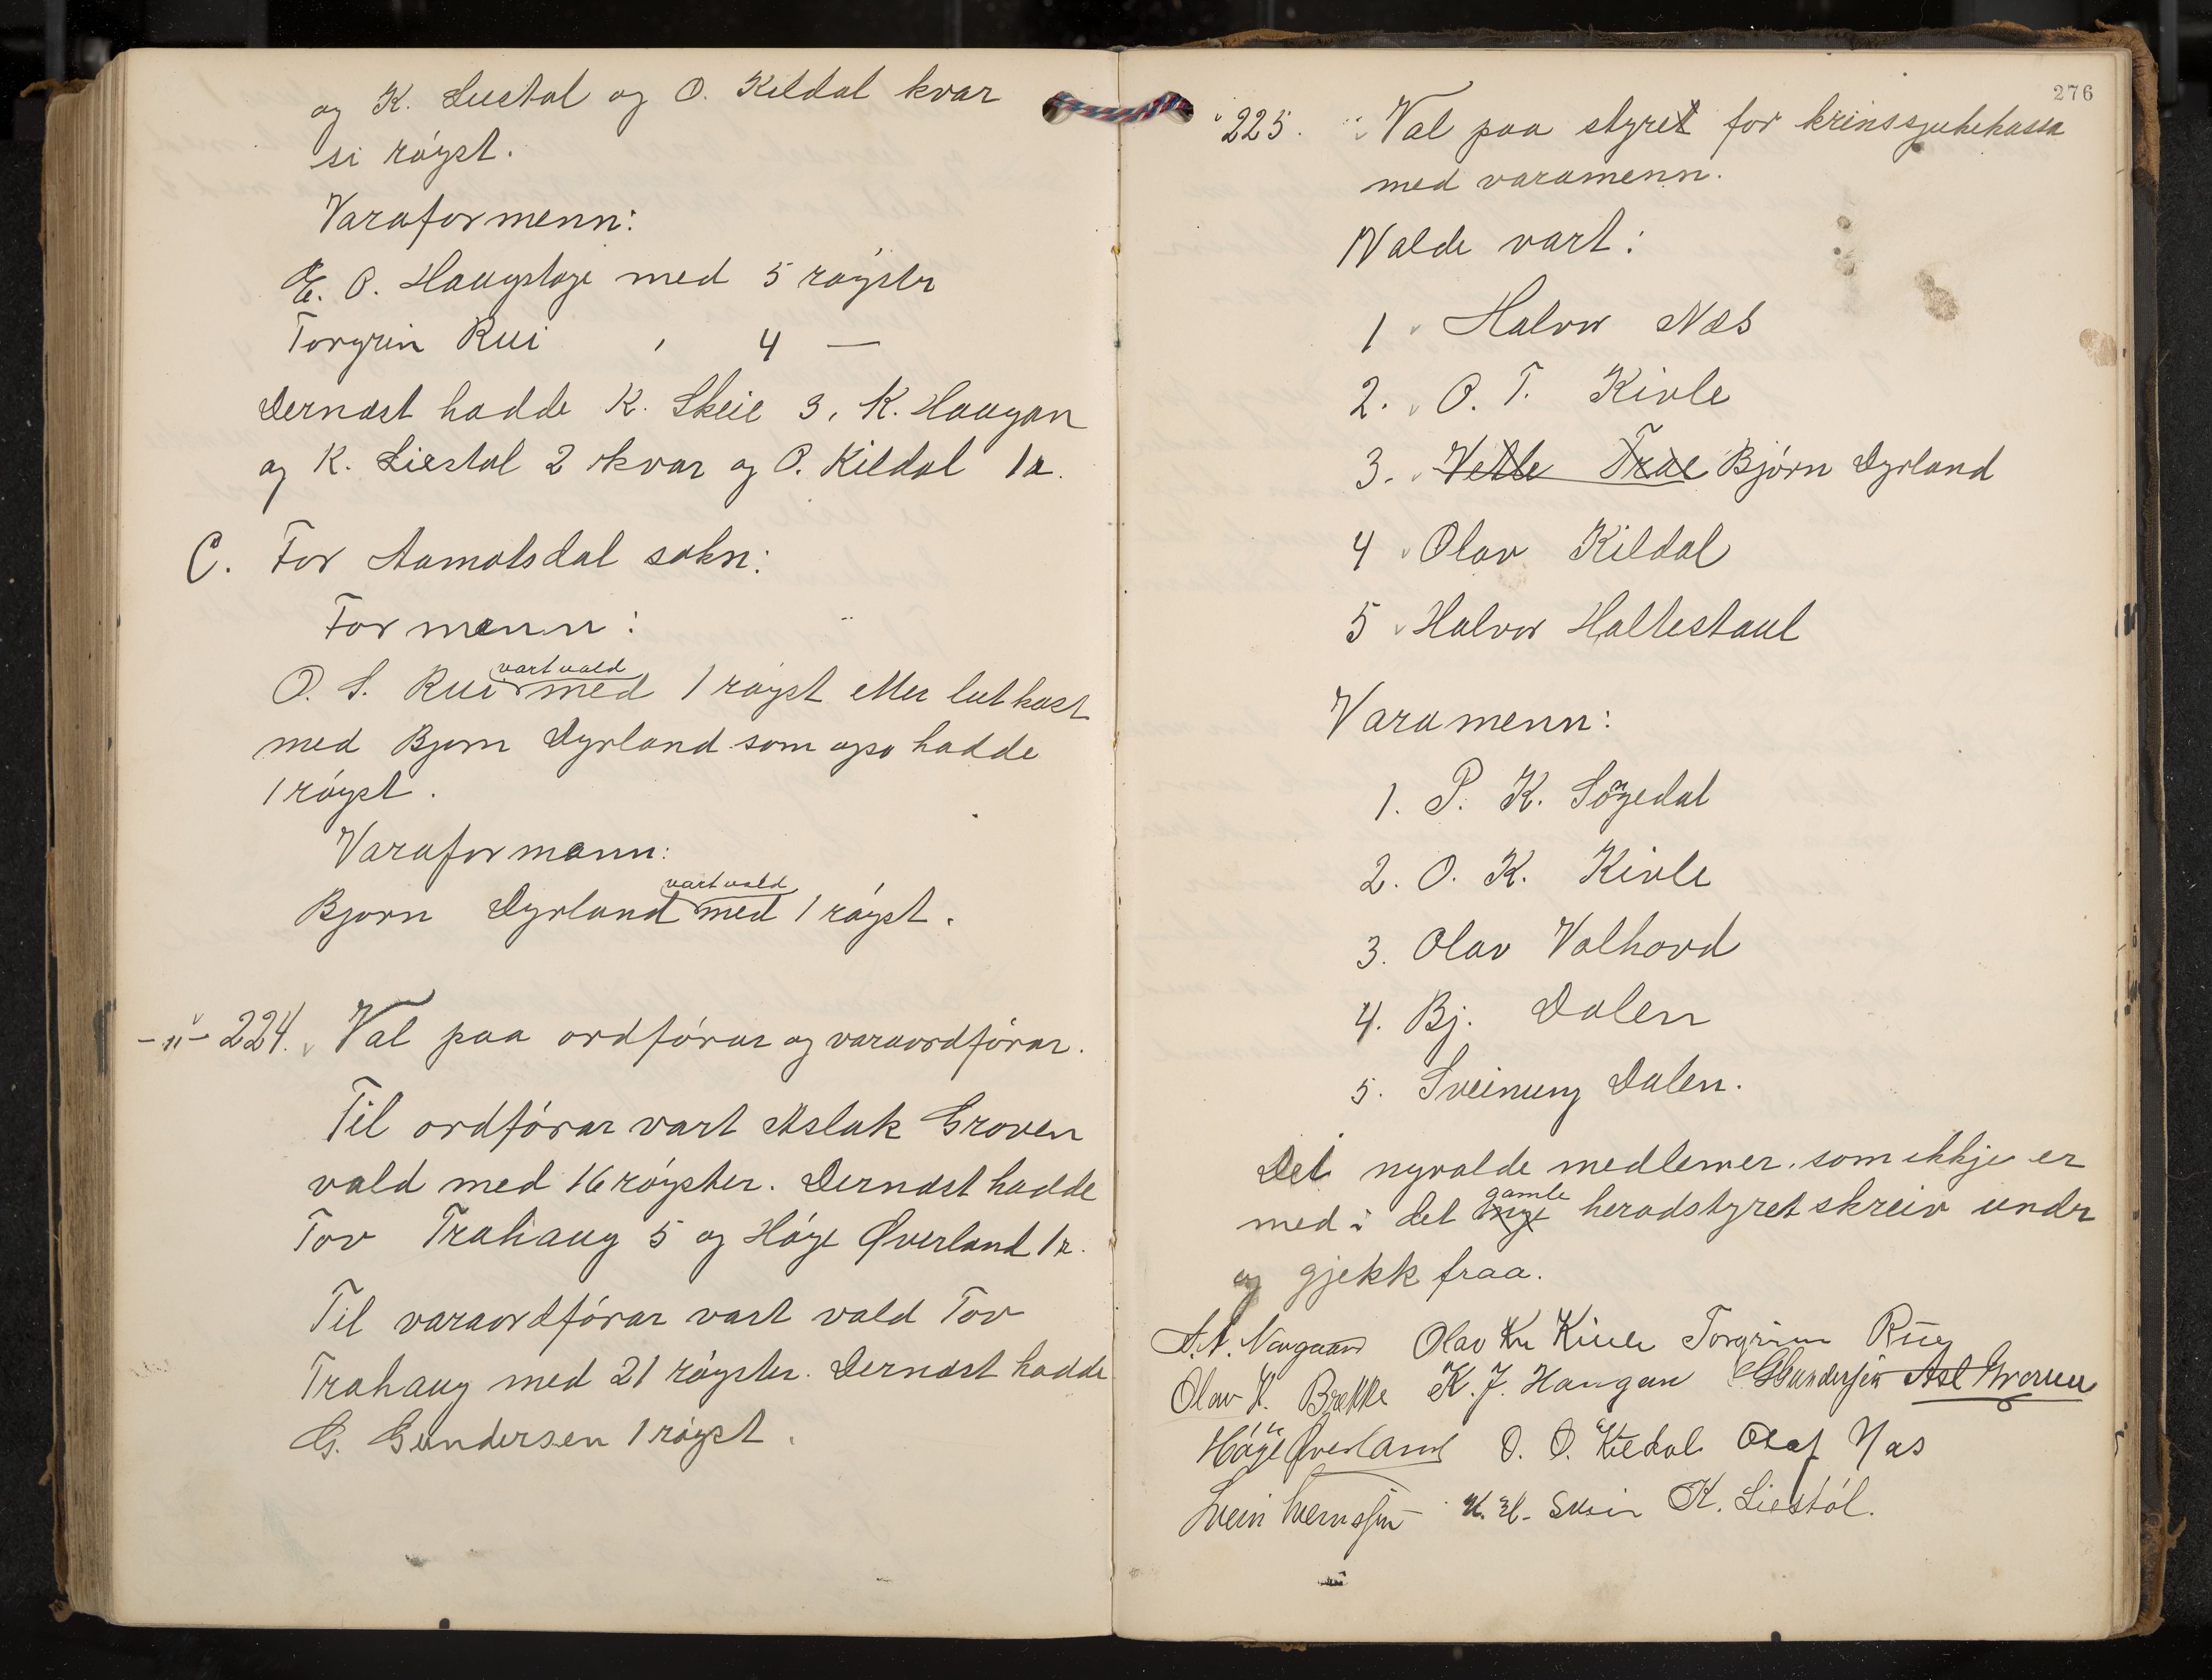 og K. Liestøl og O. Kildal kvar
si røyst.
Varaformenn:
E. O. Haugstoge med 5 røyster
Torgrim Rui " 4 —
Dernæst hadde K. Skeie 3, K. Haugan
og K. Liestøl 2 kvar og O. Kildal 1 r.
C. For Aamotsdal sokn:
Formenn:
vart vald
O. S. Rui med 1 røyst etter lutkast
med Bjørn Dyrland som ogso hadde
1 røyst.
Varaformann:
vart vald
Bjørn Dyrland med 1 røyst.
-"- 224. Val paa ordførar og varaordførar.
Til ordførar vart Aslak Groven
vald med 16 røyster. Dernæst hadde
Tov Trahaug 5 og Høge Øverland 1 r.
Til varaordførar vart vald Tov
Trahaug med 21 røyster. Dernæst hadde
G. Gundersen 1 røyst.
276
225. Val paa styret for krinssjukekassa
med varamenn.
Valde vart:
1 Halvor Næs
2. O. T. Kivle
3. Vetle Træe Bjørn Dyrland
4 Olav Kildal
5 Halvor Haltestaul
Varamenn:
1. P. K. Søgedal
2. O. K. Kivle
3. Olav Valhovd
4. Bj. Dalen
5. Sveinung Dalen.
Dei nyvalde medlemer som ikkje er
gamle
med i det nye heradstyret skreiv under
og gjekk fraa.
A. A. Norgaard Olav Kn Kivle Torgrim Rui
Olav H. Brekke K. J. Haugan G Gundersen Asl Groven
Høge Øverland O. O. Kildal Olaf Næs
Svein Sveinssen K. H. Skeie K. Liestøl.